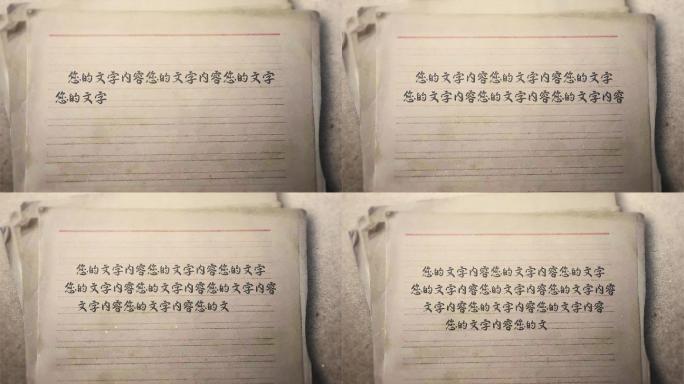 您的文字内容您的文字内容您的文字
您的文字
您的文字内容您的文字内容您的文字
您的文字内容您的文字内容您的文字内容
您的文字内容您的文字内容您的文字
您的文字内容您的文字内容您的文字内容
文字内容您的文字内容您的文
您的文字内容您的文字内容您的文字
您的文字内容您的文字内容您的文字内容
文字内容您的文字内容您的文字内容
您的文字内容您的文